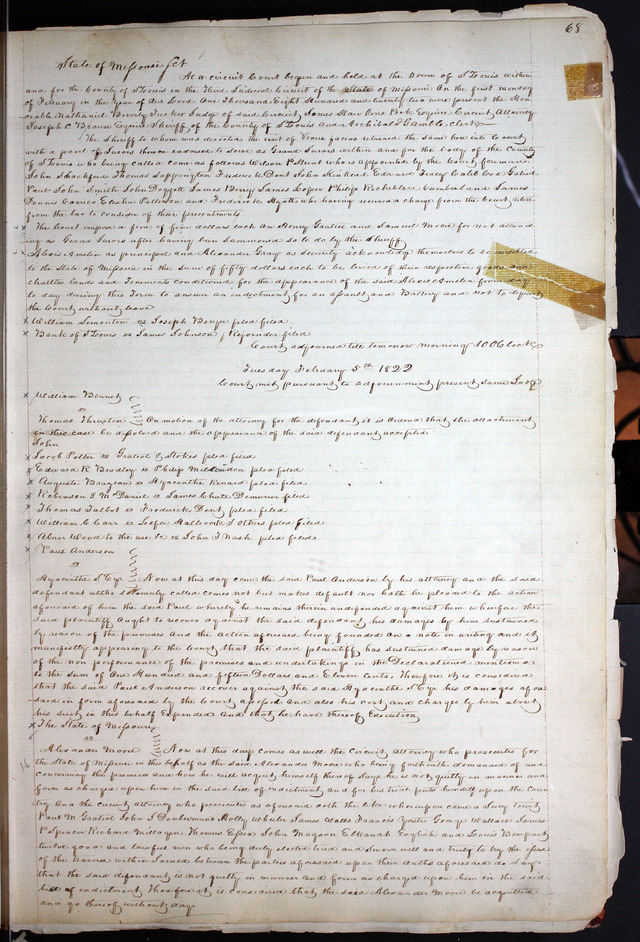 68
State of Missouri Sct
At a circuit Court begun and held at the Town of St Louis within
and for the County of St Louis in the Third Judicial Circuit of the State of Missouri On the first monday
of February in the year of Our Lord One Thousand Eight Hundred and twenty two were present the Hon
orable Nathaniel Beverly Tucker Judge of said Circuit, James Peck Esquire Circuit Attorney
Joseph C Brown Esquire Sheriff of the County of St Louis and Archibald Gamble clerk
The Sheriff to whom was directed the writ of Venire facias returned the same here into Court
with a panel of Jurors thereon endorsed to serve as Grand Jurors within and for the body of the County
of St Louis who being called come as follows Wilson P Hunt who is appointed by the Court foreman
John Shackford Thomas Sappington Frederick Dent John Edward Tracy Caleb Cox Gabriel
Paul John Smith John Doggett James Berry James Loper Philip Rocheblave Cumberland James
Dennis Carrico Elisha Patterson and Frederick Hyatt who having received a charge from the Court retire
from the bar to consider of their presentments
The Court impose a fine of five dollars each on Henry and Samuel Moore for not attend
ing as Grand Jurors after having been Summoned so to do by the Sheriff
Alexis Amelin as principal and Alexander Gray as Security acknowledge themselves to be indebted
to the State of Missouri in the sum of fifty dollars each to be levied of their respective goods and
chattles lands and Tenements conditioned for the appearance of the said Alexis Amelin from day
to day during this Term to answer an indictment for an assault and Battery and not to depart
the Court without leave
William Simonton vs Joseph plea filed
Bank of St Louis vs James Johnson, Rejoinder filed
Court adjourned till tomorrow morning 10 OClock
Tuesday February 5th 1822
Court met pursuant to adjournment present same Judge
William Bennet
vs
Thomas Thruston On motion of the attorney for the defendant it is Ordered that the attachment
in this case be dissolved and the appearance of the said defendant accepted
John
Jacob Potter vs Gratiot & Stokes plea filed
Edward R Bradley vs Philip plea filed
Auguste Brazeau vs Hyacinthe Renard plea filed
Robinson & McDaniel vs James Chute Demurrer filed
Thomas Talbot vs Frederick Dent plea filed
William C Carr vs & others plea filed
Abner Wood to the use &c vs John T Nash plea filed
Paul Anderson
vs
Hyacinthe St Cyr Now at this day come the said Paul Anderson by his attorney and the said
defendant altho Solemnly called comes not but makes default nor hath he pleaded to the action
aforesaid of him the said Paul whereby he remains therein undefended against him wherefore the
said plaintiff ought to recover against the said defendant his damages by him sustained
by reason of the premises and the action aforesaid being founded on a note in writing and it
manifestly appearing to the Court that the said plaintiff has sustained damage by reason
of the non performance of the promises and undertakings in the Declaration mentioned
to the sum of One Hundred and fifteen Dollars and Eleven Cents. Therefore it is considered
that the said Paul Anderson recover against the said Hyacinthe St Cyr his damages afore
said in form aforesaid by the Court assessed and also his cost and charges by him about
his suit in this behalf Expended and that he have thereof Execution
The State of Missouri
vs
Alexander Moore Now at this day comes as well the Circuit Attorney who prosecutes for
the State of Missouri in this behalf as the said Alexander Moore who being forthwith demanded of and
concerning the premises and how he will acquit himself thereof Says he is not guilty in manner and
form as charged upon him in the said bill of indictment and for his trial puts himself upon the Coun
try and the circuit attorney who prosecutes as aforesaid doth the like whereupon come a Jury towit
Paul M Gratiot John T Wheeler James Walls Francis Yosti George Wallace James
P Spencer Richard Milligan Thomas Essex John Magoon Elkanah English and Louis Bompart
twelve good and lawful men who being duly elected tried and Sworn well and truly to try the issue
of the traverse within Joined between the parties aforesaid upon their oaths aforesaid do say
that the said defendant is not guilty in manner and form as charged upon him in the said
bill of indictment Therefore it is considered that the said Alexander Moore be acquitted
and go thereof without day